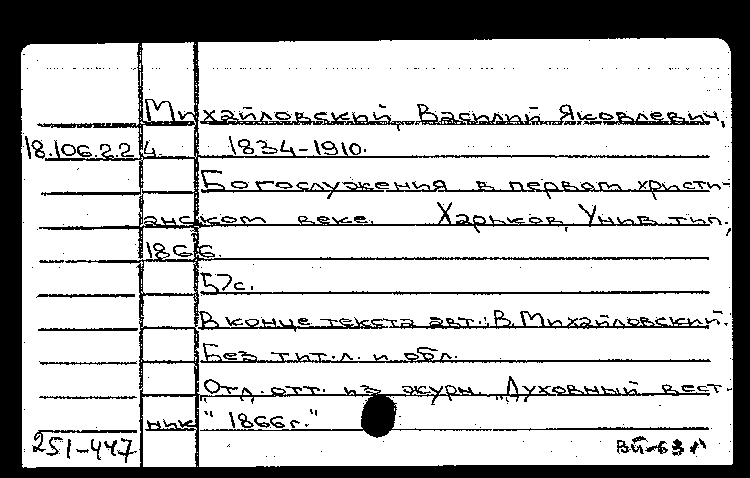 Михайловский, Василий Яковлевич,
18.106.2.24. 1834-1910.
Богослужения в первом христи-
анском веке. Харьков, Унив. тип.,
1866.
57с.
В конце текста авт.: В. Михайловский.
Без тит. л. и обл.
"Отд. отт. из журн. "Духовный вест-
ник" 1866г."
251-447